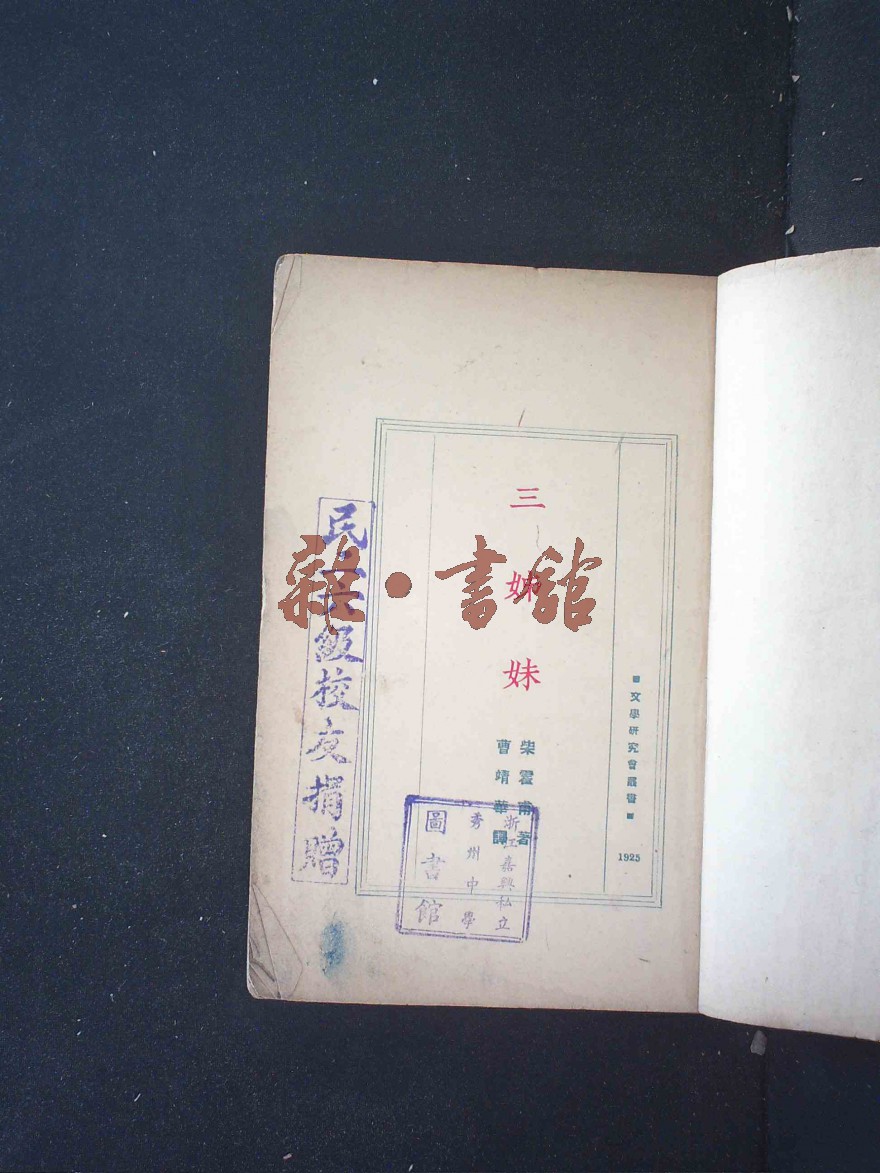 ■文學研究會叢書■
1925
三姊妹
柴霍甫著
曹靖華譯
浙江嘉興私立
秀州中學
圖書館
民二六級校友捐贈
雜·書館